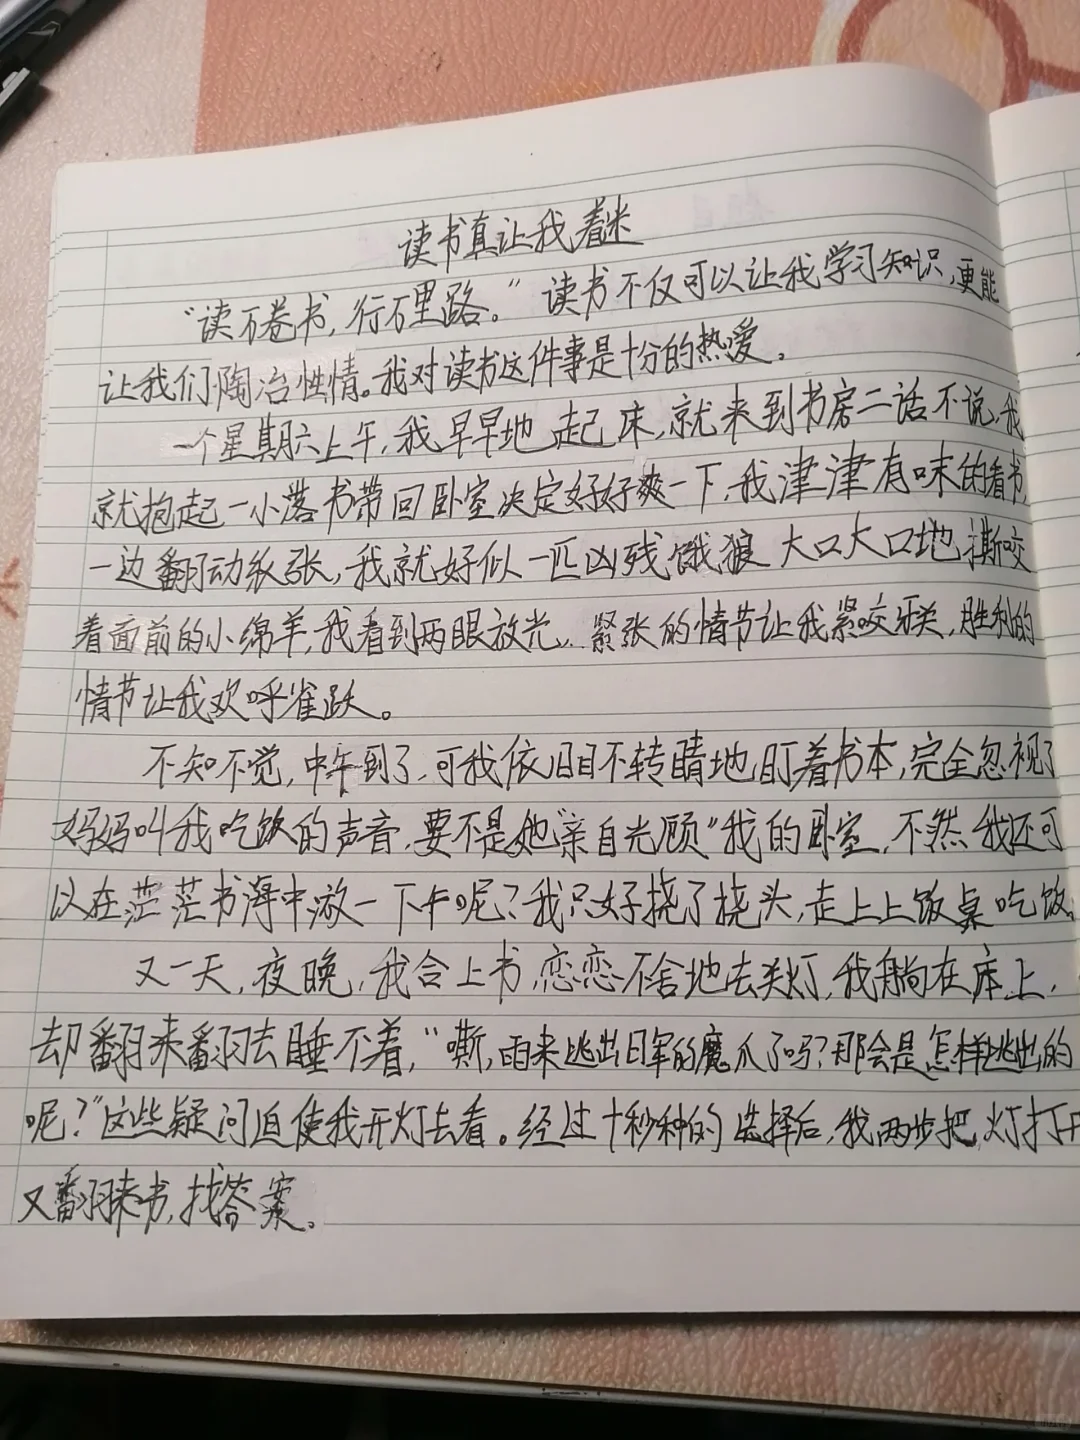 读书真让我着迷
“读万卷书,行万里路。”读书不仅可以让我学习知识,更能
让我们陶冶性情。我对读书这件事是十分的热爱。
一个星期六上午,我早早地起床,就来到书房二话不说,我
就抱起一小落书带回卧室决定好好爽一下,我津津有味的看书,
一边翻动纸张,我就好似一匹凶残饿狼大口大口地撕咬
着面前的小绵羊,我看到两眼放光,紧张的情节让我紧咬牙关,胜利的
情节让我欢呼雀跃。
不知不觉,中午到了,可我依旧目不转睛地盯着书本,完全忽视了
妈妈叫我吃饭的声音,要不是她“亲自光顾”我的卧室,不然我还可
以在茫茫书海中激一下午呢?我只好挠了挠头,走上上饭桌吃饭。
又一天,夜晚,我合上书,恋恋不舍地去关灯,我躺在床上,
却翻来翻去睡不着,“嘶,雨来逃出日军的魔爪了吗?那会是怎样逃出的
呢?”这些疑问迫使我开灯去看。经过十秒种的选择后,我两步把灯打开
又翻来书,找答案。